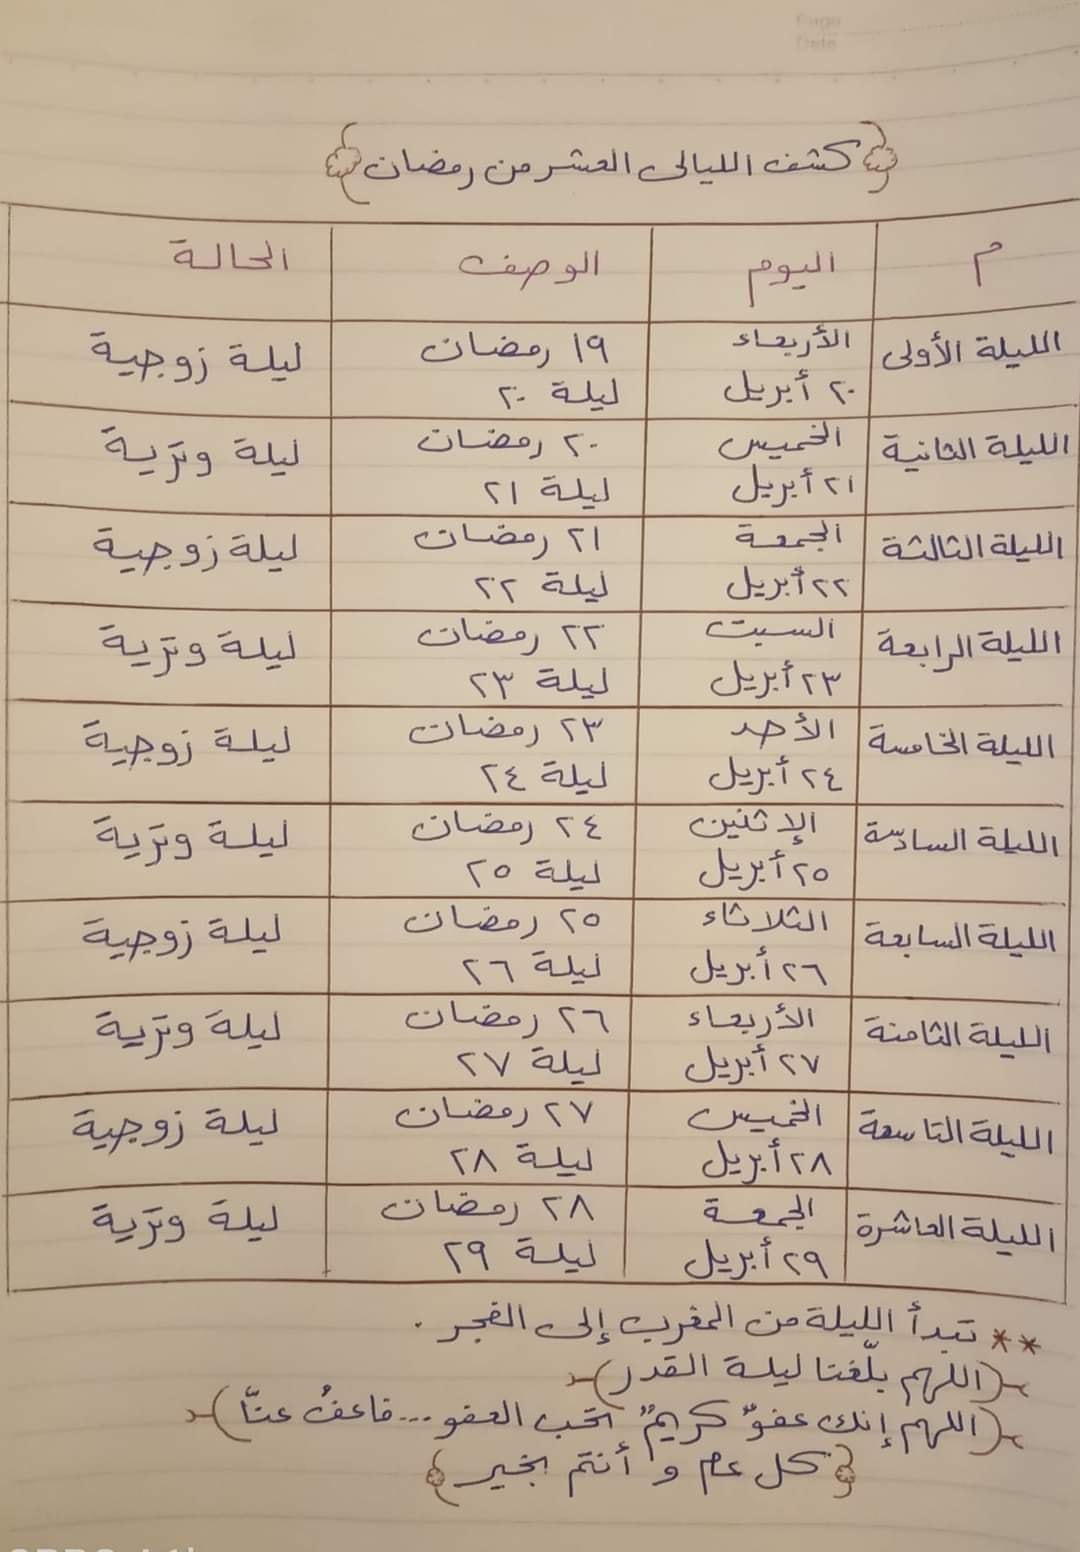 Page
Date
كشف الليالى العشر من رمضان
م اليوم الوصف الحالة
الليلة الأولى الأربعاء ١٩ رمضان ليلة زوجية
٢٠ أبريل ليلة ٢٠
الليلة الثانية الخميس ٢٠ رمضان ليلة وترية
٢١ أبريل ليلة ٢١
الليلة الثالثة الجمعة ٢١ رمضان ليلة زوجية
٢٢ أبريل ليلة ٢٢
الليلة الرابعة السبت ٢٢ رمضان ليلة وترية
٢٣ أبريل ليلة ٢٣
الليلة الخامسة الأحد ٢٣ رمضان ليلة زوجية
٢٤ أبريل ليلة ٢٤
الليلة السادسة الإثنين ٢٤ رمضان ليلة وترية
٢٥ أبريل ليلة ٢٥
الليلة السابعة الثلاثاء ٢٥ رمضان ليلة زوجية
٢٦ أبريل ليلة ٢٦
الليلة الثامنة الأربعاء ٢٦ رمضان ليلة وترية
٢٧ أبريل ليلة ٢٧
الليلة التاسعة الخميس ٢٧ رمضان ليلة زوجية
٢٨ أبريل ليلة ٢٨
الليلة العاشرة الجمعة ٢٨ رمضان ليلة وترية
٢٩ أبريل ليلة ٢٩
** تبدأ الليلة من المغرب إلى الفجر .
(اللهم بلّغنا ليلة القدر)
(اللهم إنك عفوٌ كريمٌ تحب العفو ... فاعفُ عنّا)
كل عام و أنتم بخير